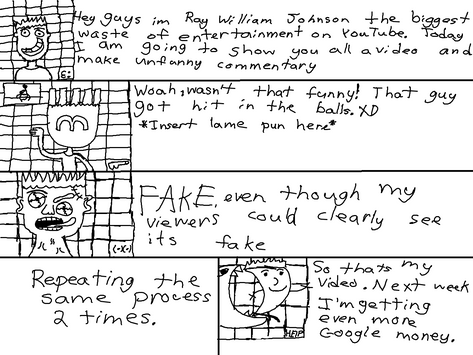 Hey guys im Ray William Johnson the biggest
waste of entertainment on YouTube. Today
I am going to show you all a video and
make unfunny commentary
Woah, wasn't that funny! That guy
got hit in the balls. XD
*Insert lame pun here*
FAKE, even though my
viewers could clearly see
its fake
Repeating the
same process
2 times.
So thats my
Video. Next week
I'm getting
even more
Google money.
HELP